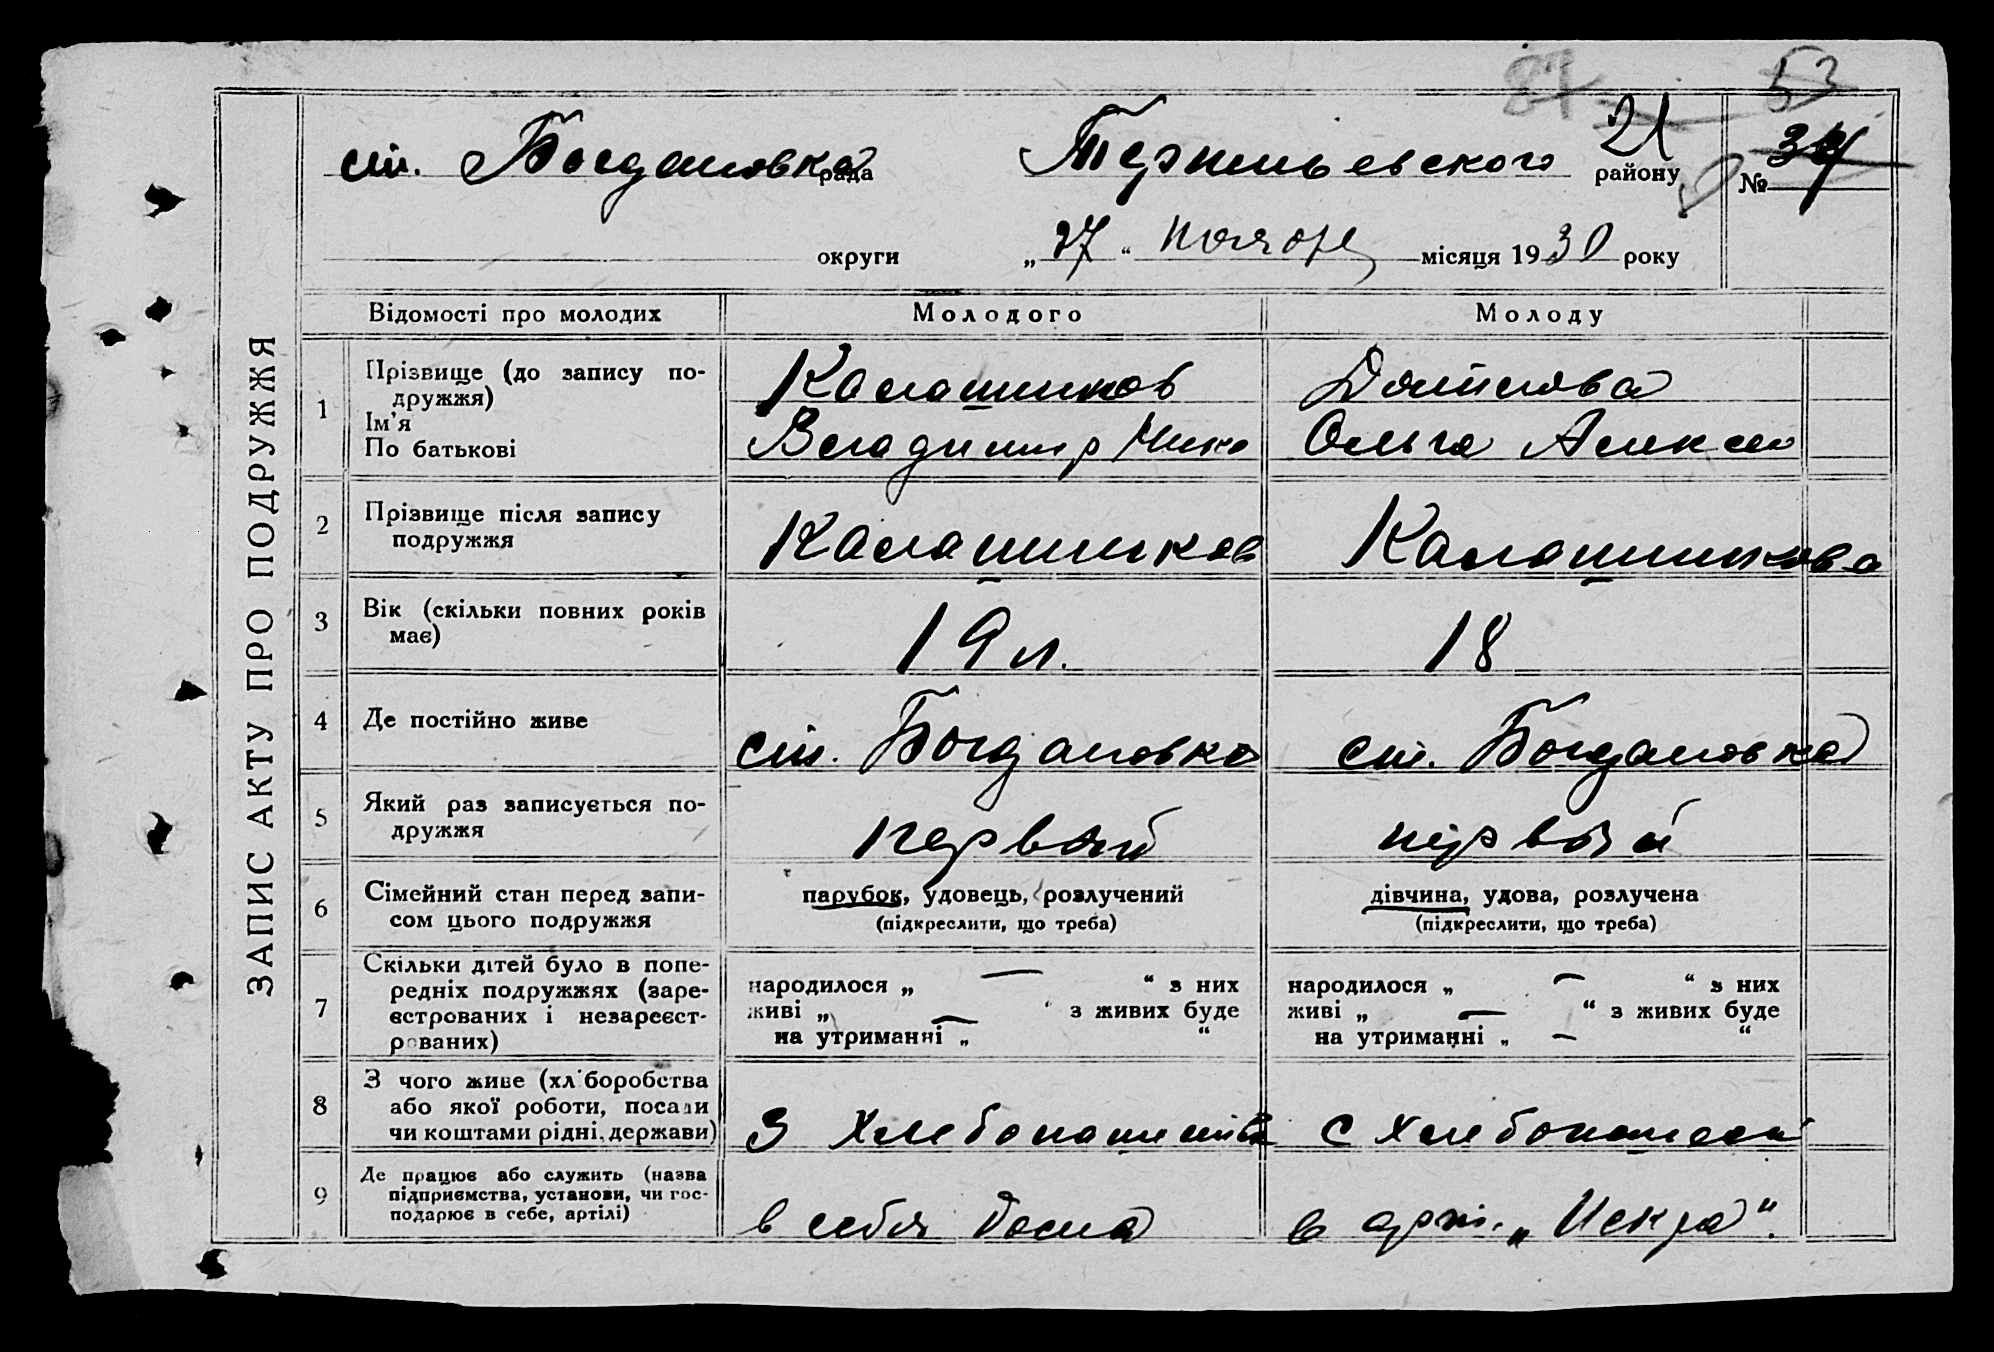 87 53
21
ст. Богдановка рада районy № 34
округи „27“ ноября місяця 1930 року
ЗАПИС АКТУ ПРО ПОДРУЖЖЯ
Відомості про молодих Молодого Молоду
1 Прізвище (до запису по-
дружжя) Калашников
Ім'я
По батькові Владимир Нико Ольга Алексе
2 Прізвище після запису
подружжя Калашников Калашникова
3 Вік (скільки повних років
має) 19 л. 18
4 Де постійно живе ст. Богдановка ст. Богдановка
5 Який раз записується по-
дружжя первый первый
6 Сімейний стан перед запи-
сом цього подружжя
парубок, удовець, розлучений дівчина, удова, розлучена
(підкреслити, що треба) (підкреслити, що треба)
7 Скільки дітей було в попе-
редніх подружжях (заре-
єстрованих і незареєст-
рованих)
народилося „ — “ з них народилося „ — “ з них
живі „ — “ з живих буде живі „ — “ з живих буде
на утриманні „ “ на утриманні „ — “
8 З чого живе (хліборобства
або якої роботи, посади
чи коштами рідні, держави) З с
9 Де працює або служить (назва
підприємства, установи, чи гос-
подарює в себе, артілі) в себя дома в арт. „Искра“.